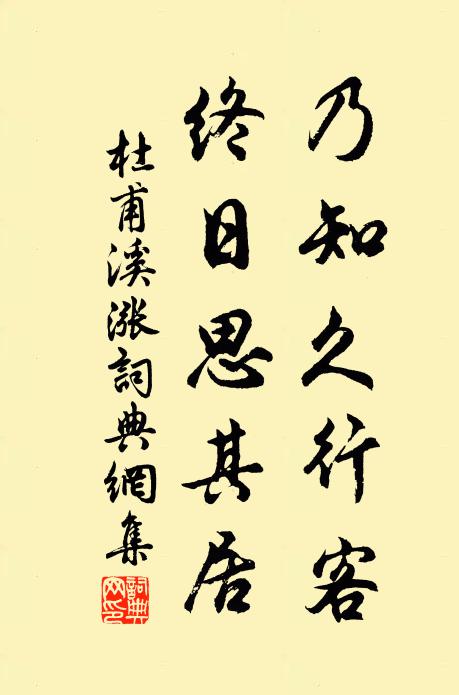 乃知久行客
終日思其居
杜甫溪漲詞典網集
詞典网印